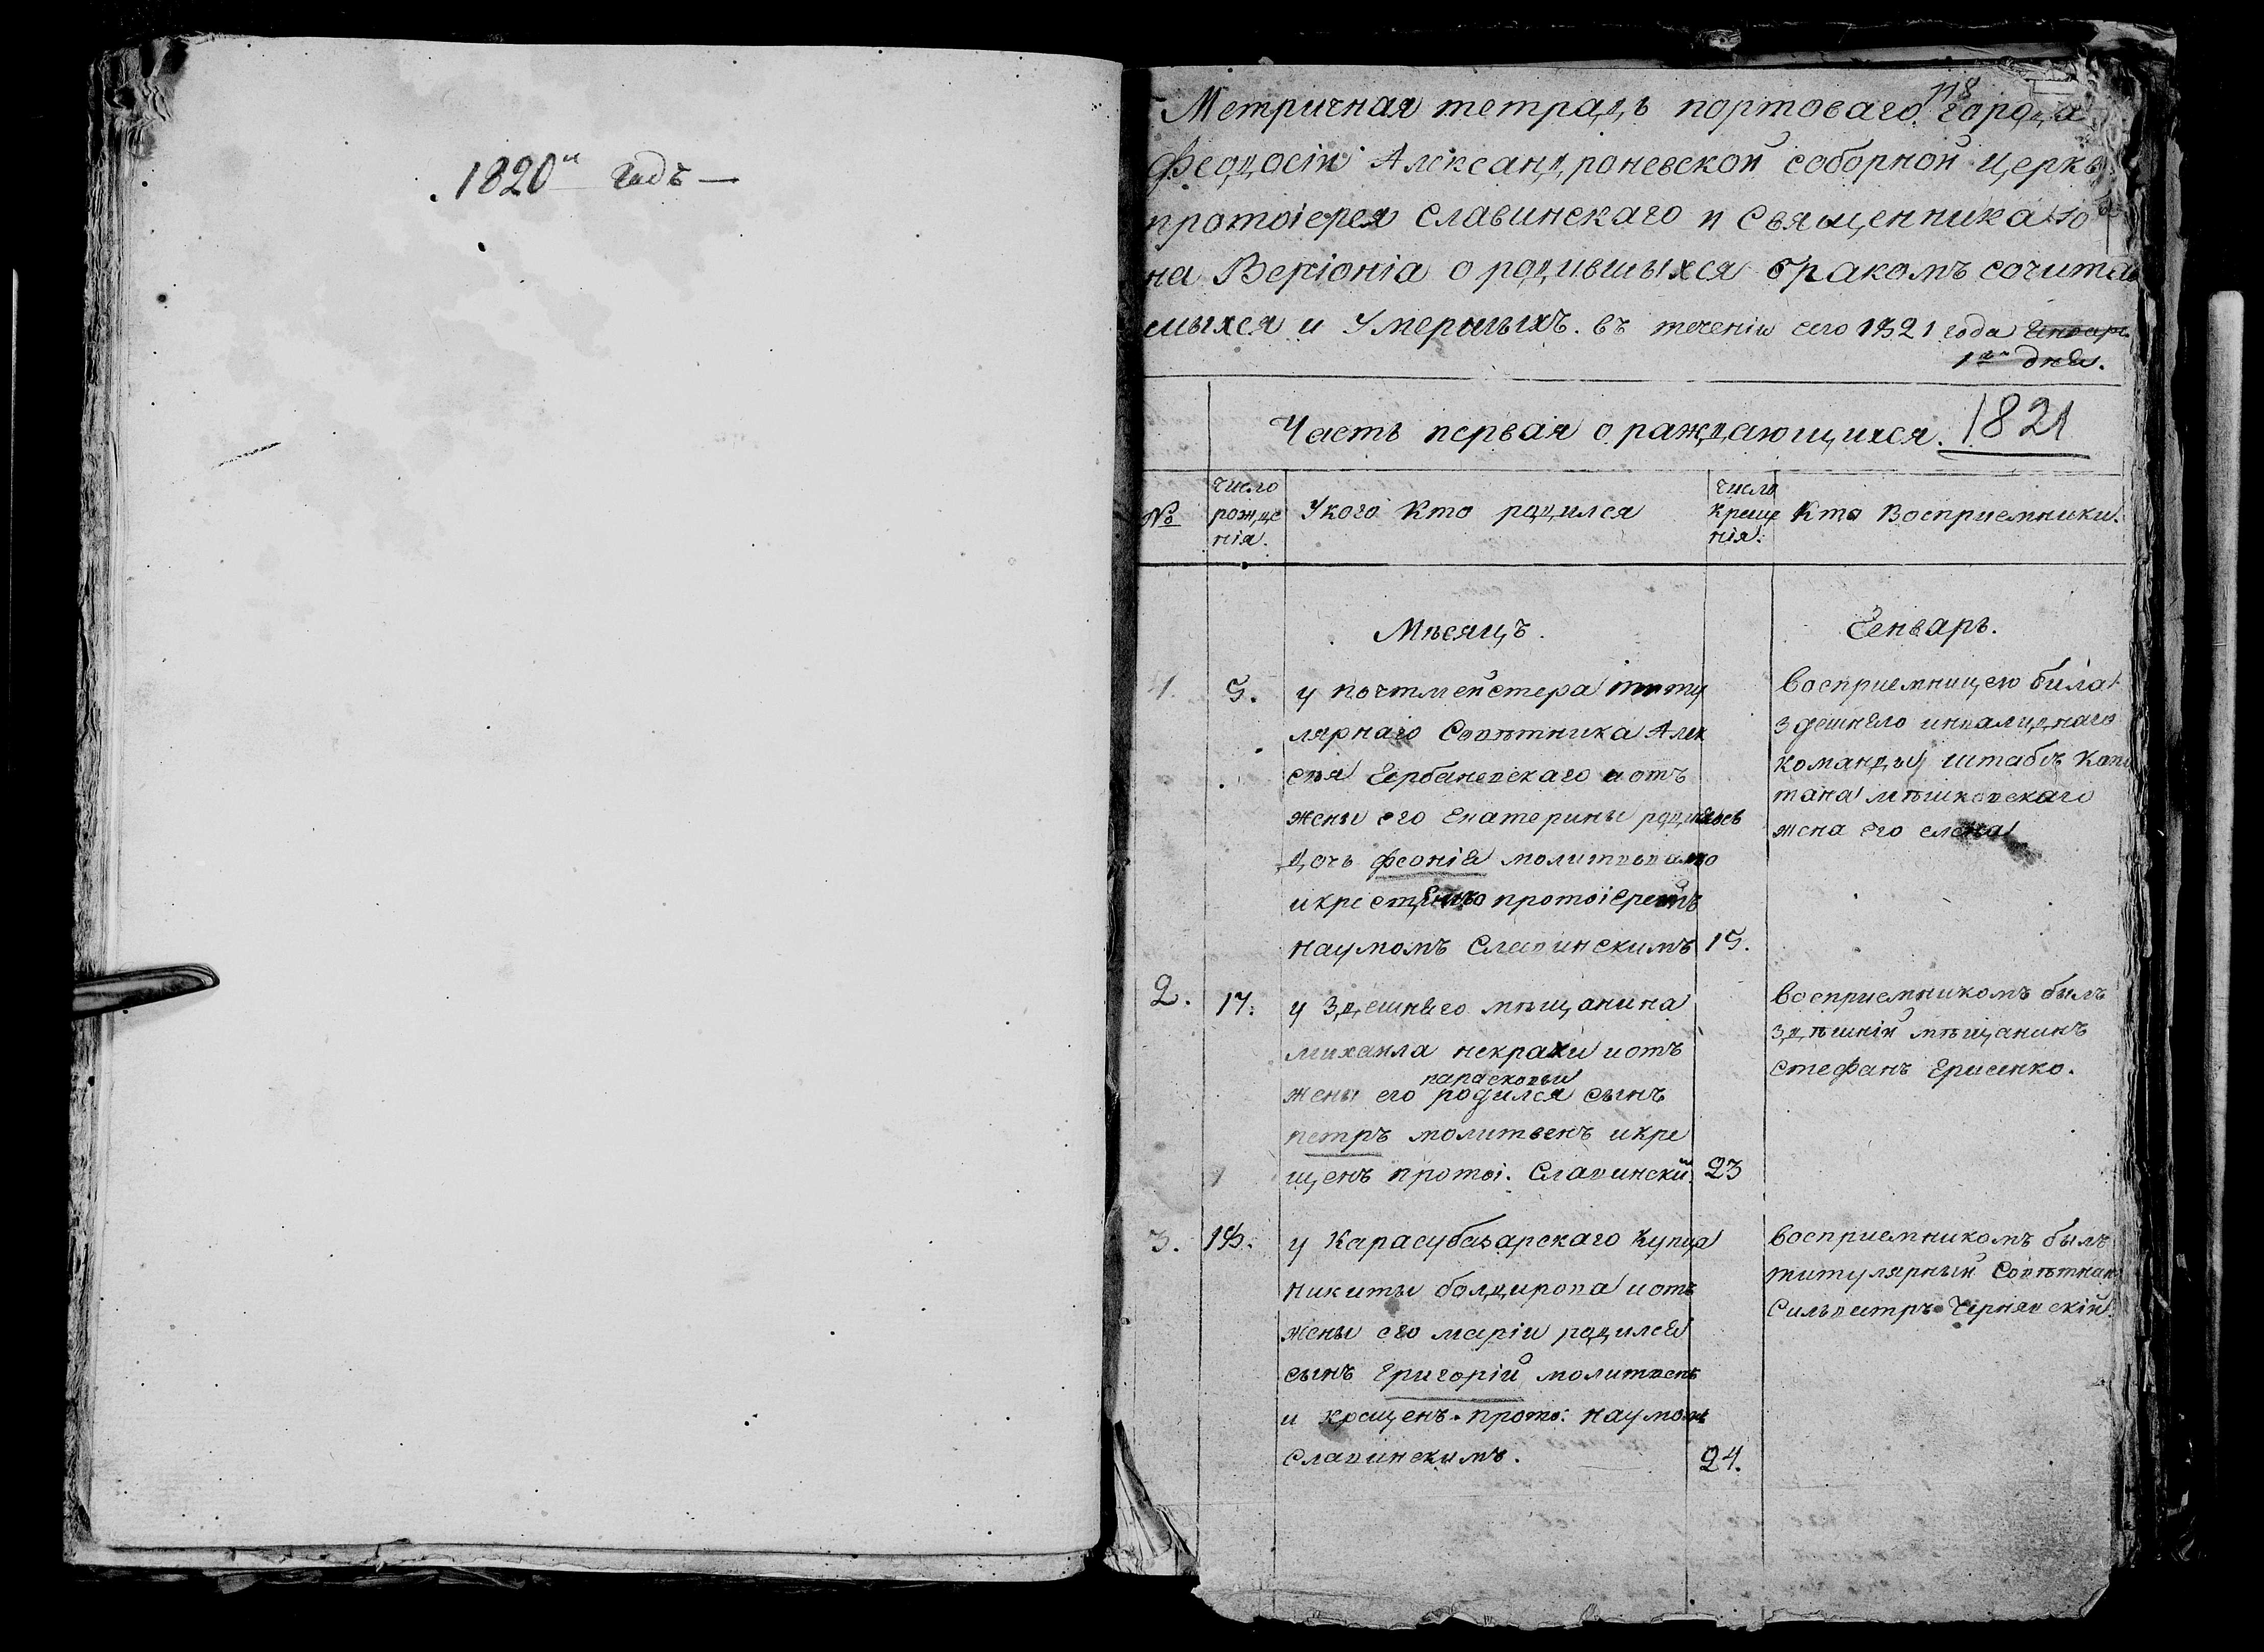 1820й годъ —
118
Метричная тетрадь портоваго города
Феодосіи Александроневской соборной церкв
протоіерея Славинскаго и Священника Іо
на Вергіоніа о родившыхся бракомъ сочита
шыхся и Умершыхъ. въ теченіи сего 1821 года Генваря
1го дня.
Часть первая о раждающихся. 1821
№
число рождения.
У кого кто родился
число креще нія.
Кто Восприемники.
Мѣсяцъ.
Генварь.
1. 5. у почтмейстера титу
лярнаго Совѣтника Алек
сѣя Гербаневскаго и отъ
жены его Екатерины родилась
дочь Феонія молитвована
и крещенна протоіереемъ
Наумомъ Славинскимъ 15.
восприемницею была
здешняго инвалиднаго
команды штабсъ Капи
тана Мѣшковскаго
жена его елена
2. 17. у здешняго мѣщанина
михаила некрахи и отъ
параскопы
жены его родился сынъ
петръ молитвенъ и кре
щенъ протоі. Славински 23
восприемникомъ былъ
здѣшній мѣщанинъ
стефанъ Ерисенко.
3. 18. у Карасубазарскаго Купца
никиты болдирова и отъ
жены его маріи родился
сынъ Григорій молитвенъ
и крещенъ прото: Наумомъ
Славинскимъ. 24.
восприемникомъ былъ
титулярный Совѣтник
Сильвестръ Чернявскій.